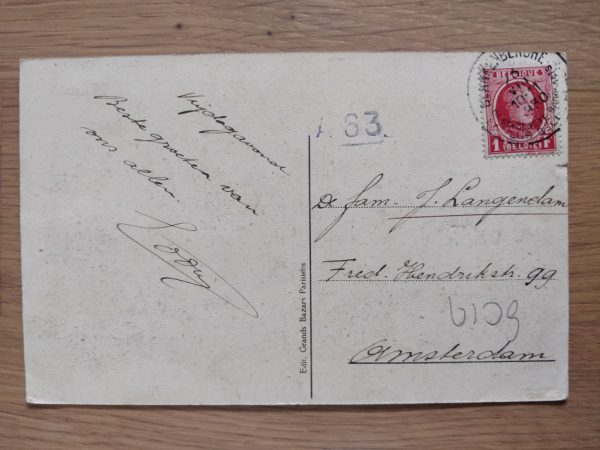 Vrijdagavond
Beste groeten van
ons allen.
A 63
BLANKENBERGHE
BELGIQUE
1 F
BELGIË
De fam. J. Langendam
Fred. Hendrikstr. 99
Amsterdam
Edit. Grands Bazars Parisiens